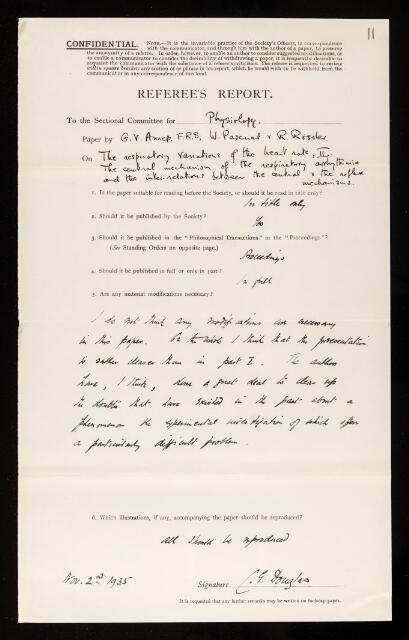 11
CONFIDENTIAL. NOTE.—It is the invariable practice of the Society's Officers, in correspondence
with the communicator, and through him with the author of a paper, to preserve
the anonymity of a referee. In order, however, to enable an author to consider suggested modifications, or
to enable a communicator to consider the desirability of withdrawing a paper, it is frequently desirable to
acquaint the communicator with the substance of a referee's criticisms. The referee is requested to
within square brackets any section of or phrase in his report, which he would wish to be withheld from the
communicator in any correspondence of this kind.
REFEREE'S REPORT.
To the Sectional Committee for Physiology.
Paper by G. V. Anrep, F.R.S, W. Pascual & R. Rössler
On The respiratory variations of the heart rate, II.
The central mechanism of the respiratory arrhythmia
and the inter-relations between the central & the reflex
mechanisms.
1. Is the paper suitable for reading before the Society, or should it be read in title only?
In title only
2. Should it be published by the Society?
Yes
3. Should it be published in the "Philosophical Transactions" or the "Proceedings"?
(See Standing Orders on opposite page.)
Proceedings
4. Should it be published in full or only in part?
In full
5. Are any material modifications necessary?
I do not think any modifications are necessary
in this paper. On the whole I think that the presentation
is rather clearer than in part I. The authors
have, I think, done a great deal to clear up
the doubts that have existed in the past about a
phenomenon the experimental investigation of which offers
a particularly difficult problem.
6. Which illustrations, if any, accompanying the paper should be reproduced?
All should be reproduced
Nov. 2nd 1935
Signature C. G. Douglas
It is requested that any further remarks may be written on foolscap paper.